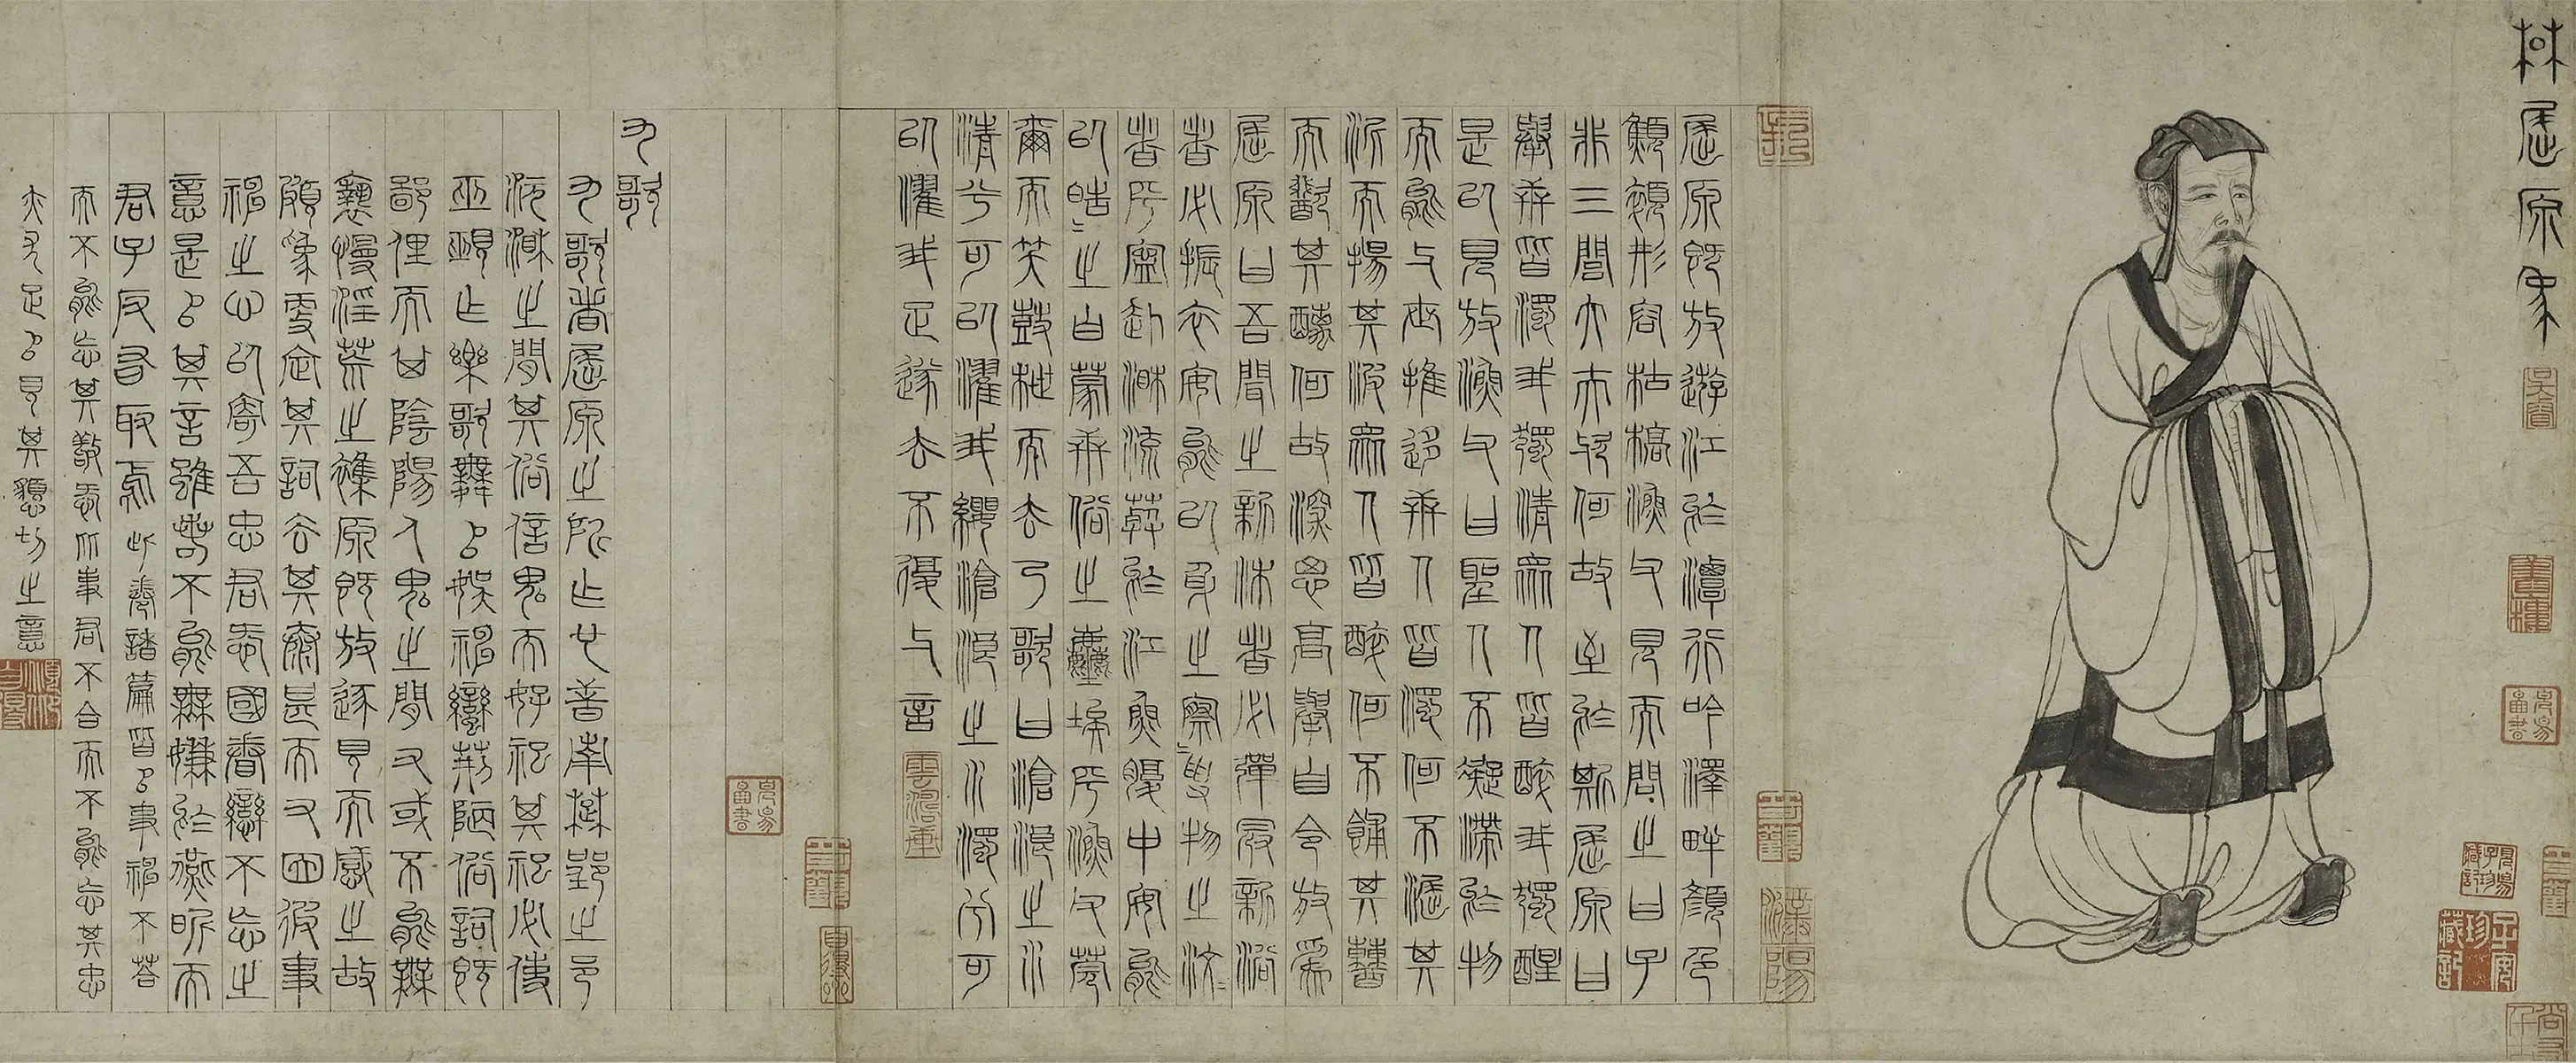 楚屈原象
屈原既放遊江於潭行吟澤畔顏色
顦顇形容枯槁漁父見而問之曰子
非三閭大夫與何故至於斯屈原曰
舉世皆濁我獨清衆人皆醉我獨醒
是以見放漁父曰聖人不凝滯於物
而能與世推移世人皆濁何不淈其
泥而揚其波衆人皆醉何不餔其糟
而歠其醨何故深思高舉自令放爲
屈原曰吾聞之新沐者必彈冠新浴
者必振衣安能以身之察〻受物之汶〻
者乎寧赴湘流葬於江魚腹中安能
以皓〻之白蒙世俗之塵埃乎漁父莞
爾而笑鼓枻而去乃歌曰滄浪之水
清兮可以濯我纓滄浪之水濁兮可
以濯我足遂去不復與言
九歌
九歌者屈原之所作也昔南楚郢之邑
沅湘之間其俗信鬼而好祀其祀必使
巫覡作樂歌舞以娛神蠻荊陋俗詞既
鄙俚而其陰陽人鬼之間又或不能無
褻慢淫荒之雜原既放逐見而感之故
頗爲更定其詞去其泰甚而又因彼事
神之心以寄吾忠君愛國眷戀不忘之
意是以其言雖若不能無嫌於燕昵而
君子反有取焉此卷諸篇皆以事神不答
而不能忘其敬愛比事君不合而不能忘其忠
赤尤足以見其懇切之意
吳睿